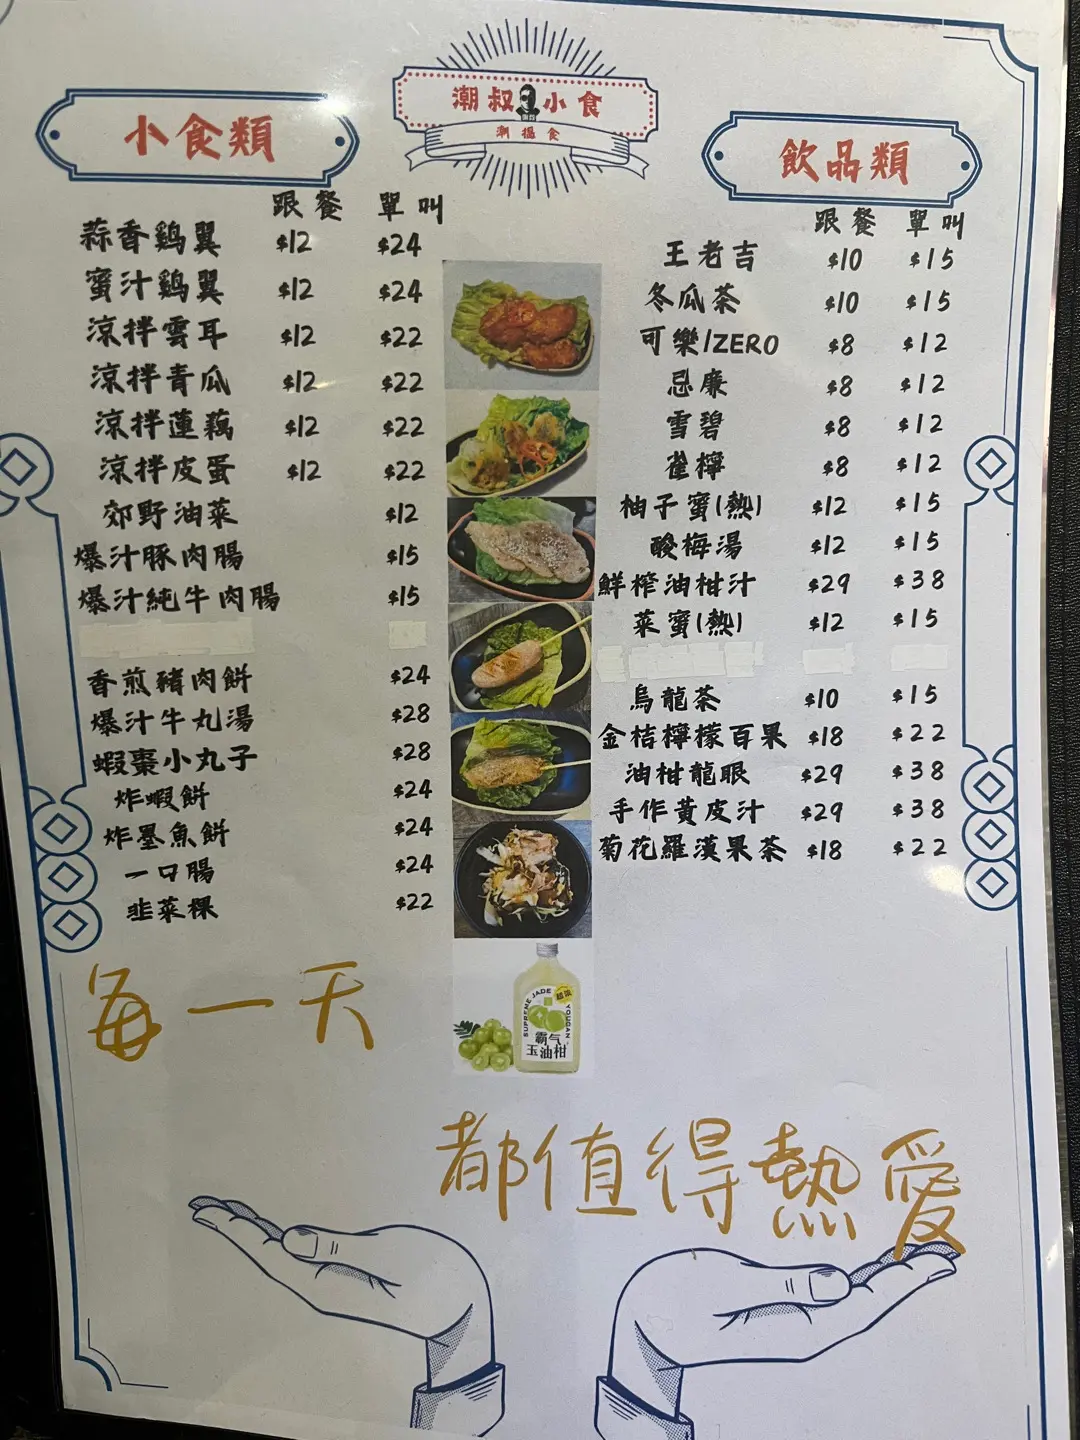 潮叔小食
潮揾食
小食類
跟餐 單叫
蒜香鷄翼 $12 $24
蜜汁鷄翼 $12 $24
涼拌雲耳 $12 $22
涼拌青瓜 $12 $22
涼拌蓮藕 $12 $22
涼拌皮蛋 $12 $22
郊野油菜 $12
爆汁豚肉腸 $15
爆汁純牛肉腸 $15
香煎豬肉餅 $24
爆汁牛丸湯 $28
蝦棗小丸子 $28
炸蝦餅 $24
炸墨魚餅 $24
一口腸 $24
韭菜粿 $22
飲品類
跟餐 單叫
王老吉 $10 $15
冬瓜茶 $10 $15
可樂/ZERO $8 $12
忌廉 $8 $12
雪碧 $8 $12
雀檸 $8 $12
柚子蜜(熱) $12 $15
酸梅湯 $12 $15
鮮榨油柑汁 $29 $38
菜蜜(熱) $12 $15
烏龍茶 $10 $15
金桔檸檬百果 $18 $22
油柑龍眼 $29 $38
手作黃皮汁 $29 $38
菊花羅漢果茶 $18 $22
SUPREME JADE
YOUGAN
霸气
玉油柑
每一天
都值得熱愛